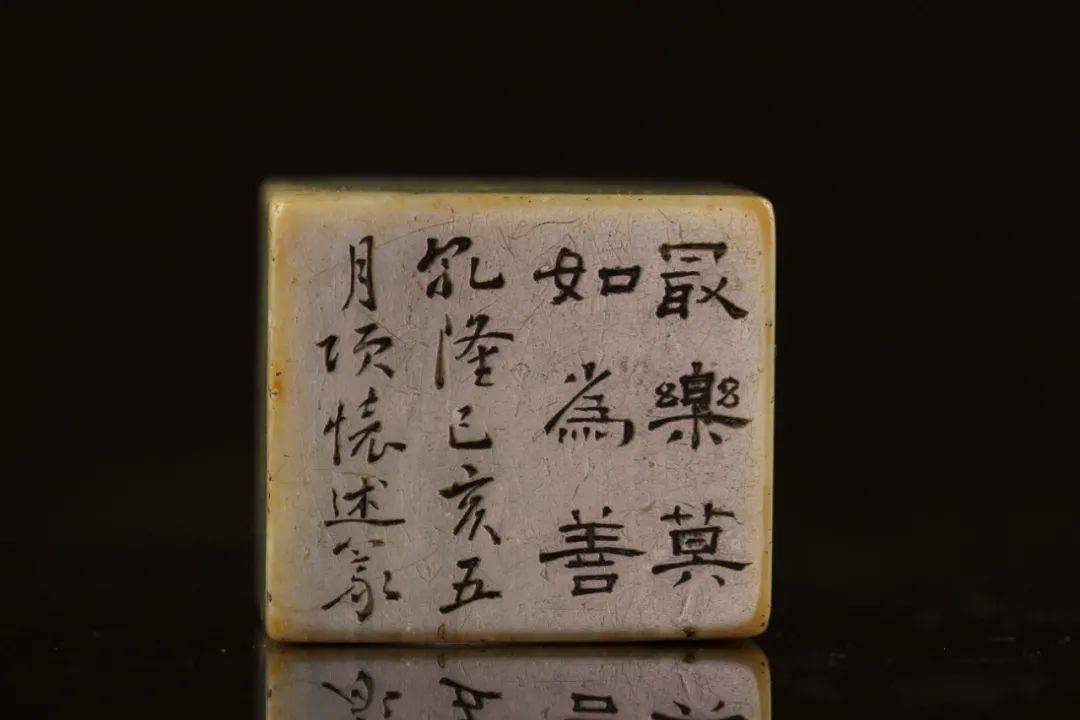 最樂莫
如為善
乾隆己亥五
月項懷述篆